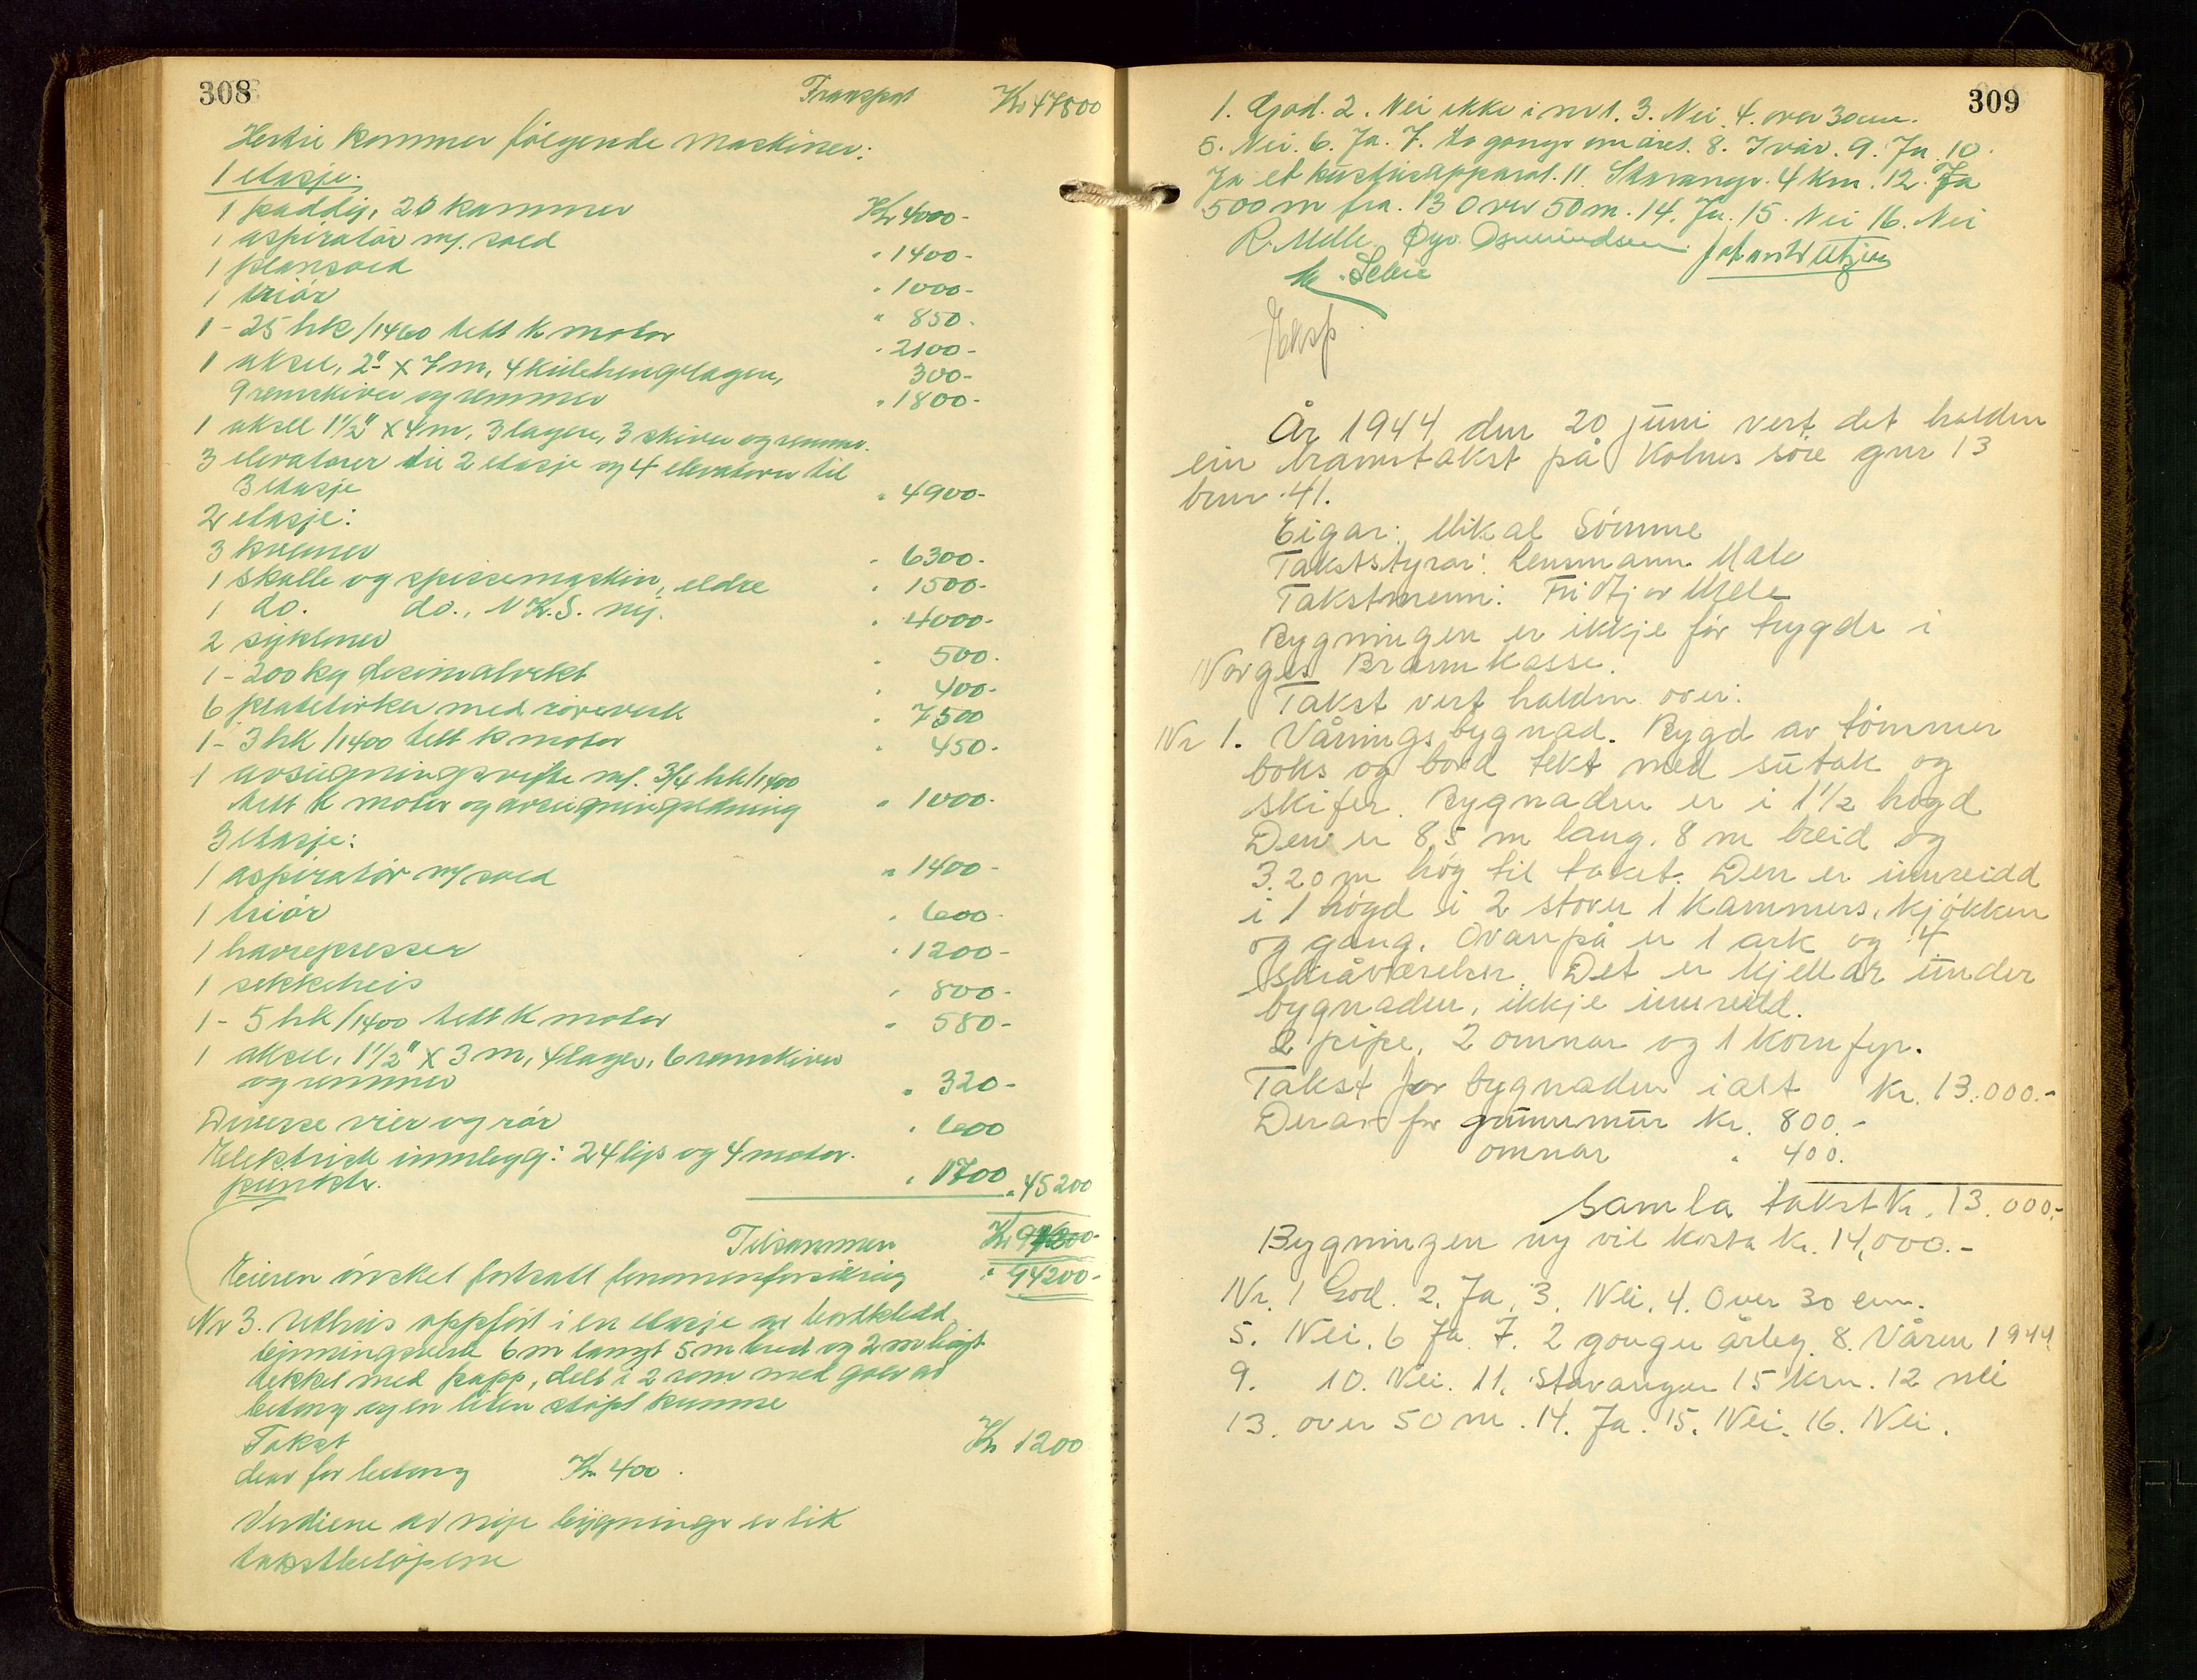 308
Transport Kr 47800
Hertil kommer følgende maskiner:
1 etasje.
1 paddig, 20 kammer Kr 4000-
1 aspiratør m/. sold " 1400-
1 plansold " 1000-
1 triør " 850.
1 - 25 hk/1460 tett k motor " 2100-
1 aksel, 2" x 7 m, 4 kulehengelagere, 300-
9 remskiver og remmer " 1800-
1 aksel 1½" x 4 m, 3 lagere, 3 skiver og remmer.
3 elevatorer til 2 etasje og 4 elevatorer til
3 etasje " 4900-
2 etasje:
3 kverner " 6300-
1 skalle og spissemaskin, eldre " 1500-
1 do. do., N.K.S. ny. " 4000-
2 sykloner " 500.
1 - 200 kg desimalvekt " 400-
6 platetørker med rørverk " 7500
1 - 3 hk/1400 tett k motor " 450.
1 avsugningsvifte m/. 3/4 hk/1400
tett k motor og avsugningsledning " 1000-
3 etasje:
1 aspiratør m/ sold " 1400-
1 triør " 600-
1 havrepresser " 1200-
1 sekkeheis " 800-
1 - 5 hk/1400 tett k motor " 580-
1 aksel, 1½" x 3 m, 4 lager, 6 remskiver
og remmer " 320-
Diverse rier og rør " 600
Elektrisk innlegg: 24 lys og 4 motor.
punkter. " 1700 " 45200
Tilsammen Kr
Eieren ønsket fortsatt " 94200-
Nr 3. Uthus oppført i en etasje av bordkledd
binningsverk 6 m langt 5 m bred og 2 m høgt
tekket med papp, delt i 2 rom med golv av
betong og en liten støpt kumme
Takst Kr 1200
derav for betong Kr 400.
Verdiene av nye bygninger er lik
takstbeløpene
309
1. God. 2. Nei ikke i mrt. 3. Nei. 4. over 30 cm.
5. Nei. 6. Ja. 7. to ganger om året. 8. I vår. 9. Ja. 10.
Ja et apparat. 11. Stavanger. 4 km. 12. Ja
500 m fra. 13 Over 50 m. 14. Ja. 15. Nei 16. Nei
R. Melle. Øyv. Osmundsen.
År 1944 den 20 juni vert det halden
ein branntakst på Kolnes søre gnr 13
bnr. 41.
Eigar: Mikal Sømme
Takststyrar: Lensmann Male
Takstmenn: Fridtjov Mæle
Bygningen er ikkje før trygda i
Norges Brannkasse.
Takst vert halden over:
Nr 1. Våningsbygnad. Bygd av tømmer
boks og bord tekt med sutak og
skifer. Bygnaden er i 1½ høgd
Den er 8,5 m lang. 8 m breid og
3.20 m høg til taket. Den er innreidd
i 1 høgd i 2 stover 1 kammers, kjøkken
og gang. Ovanpå er 1 ark og 4
skråværelser. Det er kjellar under
bygnaden, ikkje innreidd.
2 pipe, 2 omnar og 1 komfyr.
Takst for bygnaden i alt Kr. 13.000.-
Derav for grunnmur kr. 800.-
omnar " 400.
Samla takst Kr. 13.000.-
Bygningen ny vil kosta kr. 14,000.-
Nr. 1 God. 2. Ja. 3. Nei. 4. Over 30 cm.
5. Nei. 6 Ja. 7. 2 gonger årleg. 8. Våren 1944
9. 10. Nei. 11. Stavanger 15 km. 12 nei
13. over 50 m. 14. Ja. 15. Nei. 16. Nei.